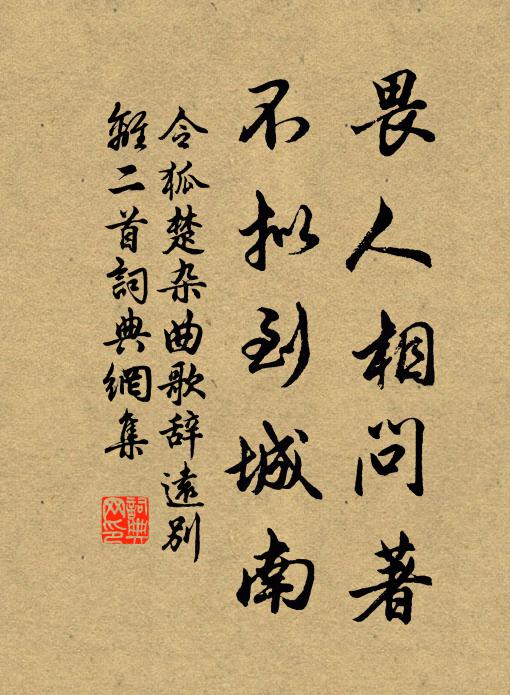 畏人相問著
不拟到城南
令狐楚杂曲歌辞遠别
離二首詞典網集
詞典
网印